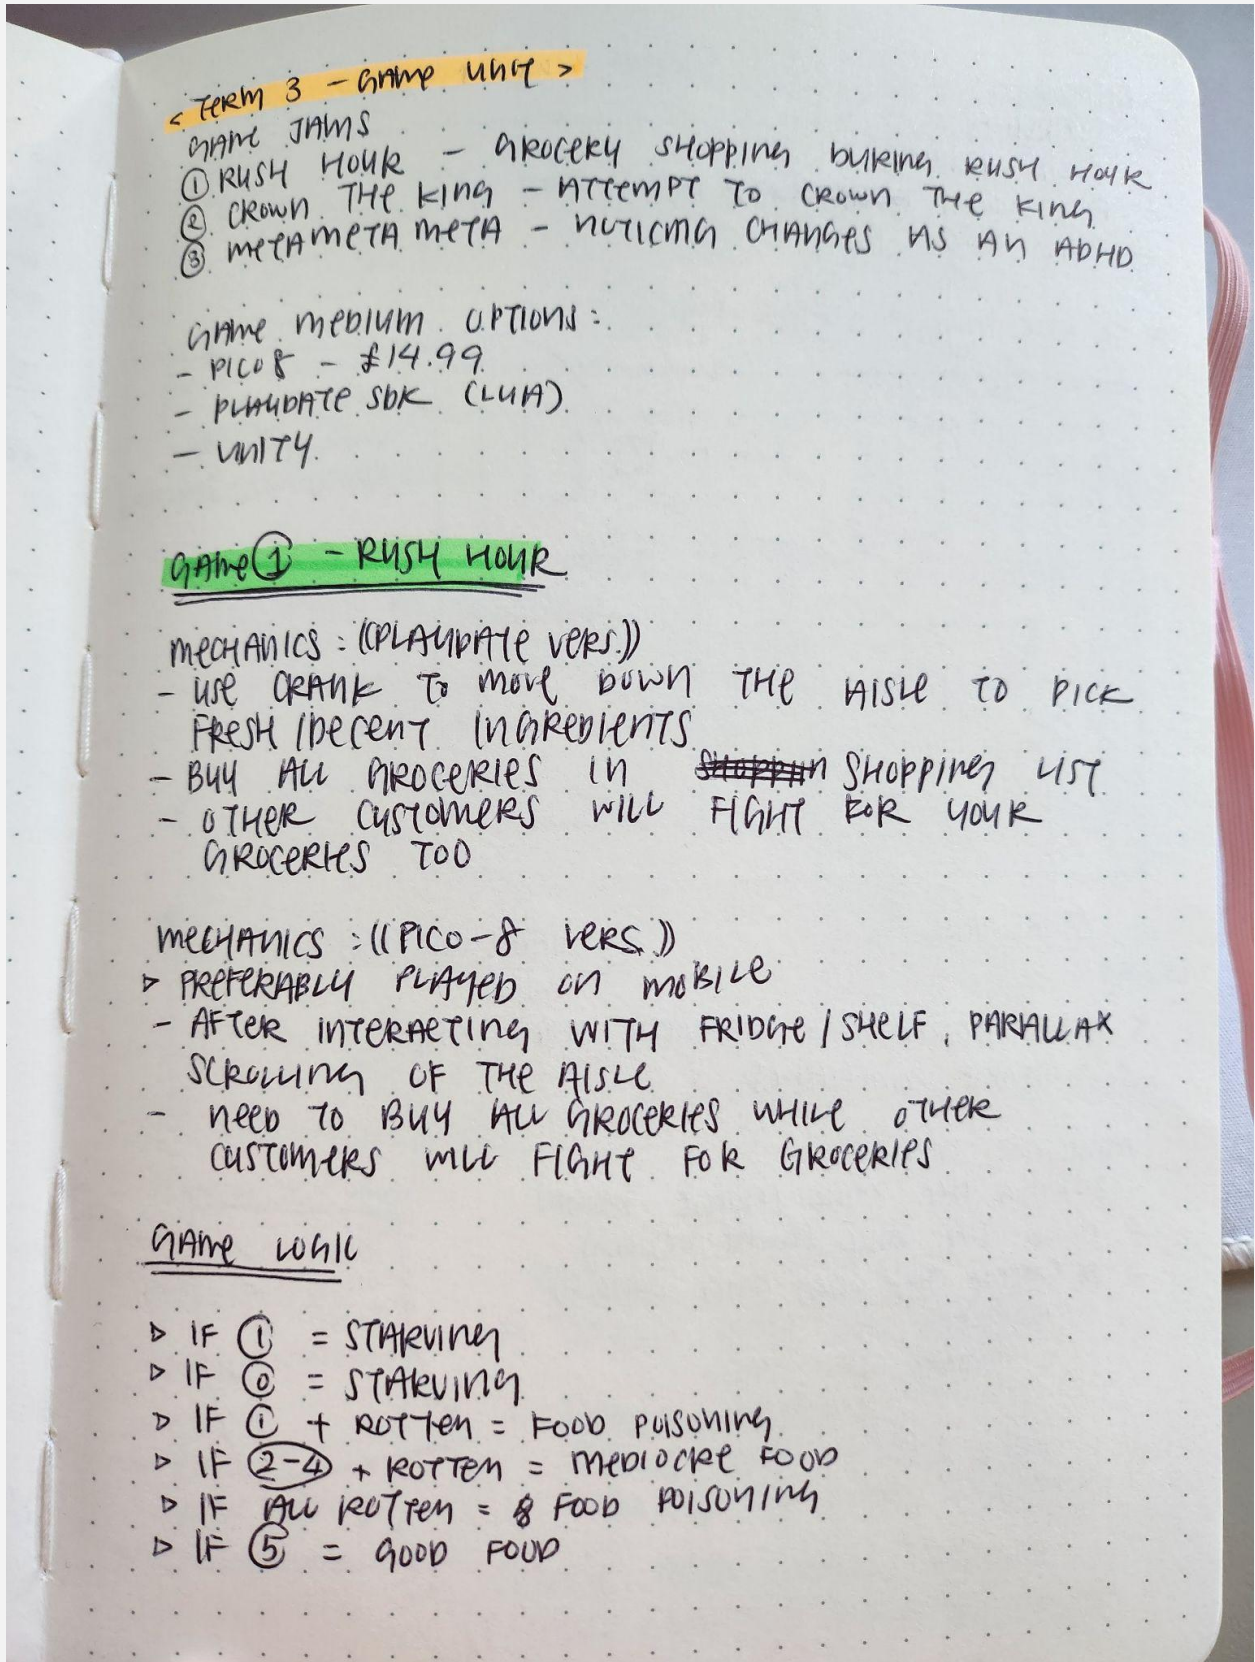 < TERM 3 - GAME UNIT >
GAME JAMS
① RUSH HOUR - GROCERY SHOPPING DURING RUSH HOUR
② CROWN THE KING - ATTEMPT TO CROWN THE KING
③ META META META - NOTICING CHANGES AS AN ADHD
GAME MEDIUM OPTIONS:
- PICO 8 - £14.99
- PLAYDATE SDK (LUA)
- UNITY
GAME ① - RUSH HOUR
MECHANICS : ((PLAYDATE VERS.))
- USE CRANK TO MOVE DOWN THE AISLE TO PICK
FRESH / DECENT INGREDIENTS
- BUY ALL GROCERIES IN SHOPPING LIST
- OTHER CUSTOMERS WILL FIGHT FOR YOUR
GROCERIES TOO
MECHANICS : ((PICO-8 VERS.))
▷ PREFERABLY PLAYED ON MOBILE
- AFTER INTERACTING WITH FRIDGE / SHELF, PARALLAX
SCROLLING OF THE AISLE
- NEED TO BUY ALL GROCERIES WHILE OTHER
CUSTOMERS WILL FIGHT FOR GROCERIES
GAME LOGIC
▷ IF ① = STARVING
▷ IF ⓪ = STARVING
▷ IF ① + ROTTEN = FOOD POISONING
▷ IF 2-4 + ROTTEN = MEDIOCRE FOOD
▷ IF ALL ROTTEN = FOOD POISONING
▷ IF ⑤ = GOOD FOOD